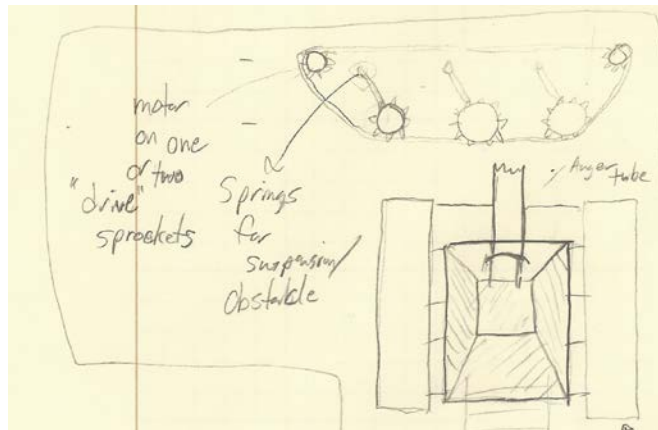 motor
on one
or two
"drive"
sprockets
Springs
for
suspension/
obstable
Auger tube